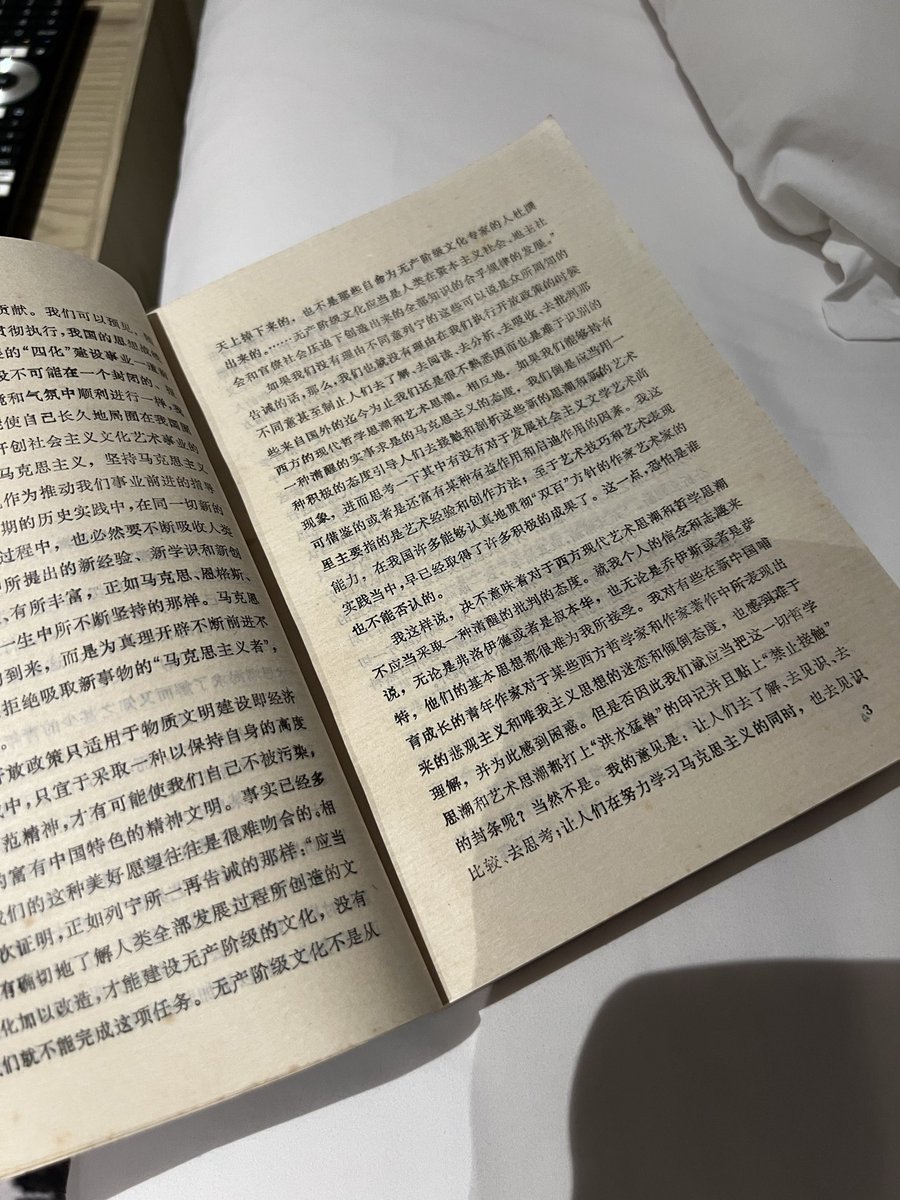 贡献。我们可以预见，
贯彻执行，我国的思想战线
的“四化”建设事业一
设不可能在一个封闭的、
和气氛中顺利进行一样，要
能使自己长久地局囿在我国
开创社会主义文化艺术事业的
马克思主义，坚持马克思主义
作为推动我们事业前进的指导
期的历史实践中，在同一切新的
过程中，也必然要不断吸收人类
所提出的新经验、新学识和新创
、有所丰富，正如马克思、恩格斯、
一生中所不断坚持的那样。马克思
的到来，而是为真理开辟不断前进不
拒绝吸取新事物的“马克思主义者”，
。
开放政策只适用于物质文明建设即经济
中，只宜于采取一种以保持自身的高度
范精神，才有可能使我们自己不被污染，
的富有中国特色的精神文明。事实已经多
我们的这种美好愿望往往是很难吻合的。相
次证明，正如列宁所一再告诫的那样：“应当
有确切地了解人类全部发展过程所创造的文
化加以改造，才能建设无产阶级的文化，没有
我们就不能完成这项任务。无产阶级文化不是从
天上掉下来的，也不是那些自命为无产阶级文化专家的人杜撰
出来的。……无产阶级文化应当是人类在资本主义社会、地主社
会和官僚社会压迫下创造出来的全部知识的合乎规律的发展。”
如果我们没有理由不同意列宁的这些可以说是众所周知的
告诫的话，那么，我们也就没有理由在我们执行开放政策的时候
不同意甚至制止人们去了解、去阅读、去分析、去吸收、去批判那
些来自国外的迄今为止我们还是很不熟悉因而也是难于识别的
西方的现代哲学思潮和艺术思潮。相反地，如果我们能够持有
一种清醒的实事求是的马克思主义的态度，我们倒是应当用一
种积极的态度引导人们去接触和剖析这些新的思潮和新的艺术
现象，进而思考一下其中有没有对于发展社会主义文学艺术尚
可借鉴的或者是还富有某种有益作用和启迪作用的因素。我这
里主要指的是艺术经验和创作方法；至于艺术技巧和艺术表现
能力，在我国许多能够认真地贯彻“双百”方针的作家艺术家的
实践当中，早已经取得了许多积极的成果了。这一点，恐怕是谁
也不能否认的。
我这样说，决不意味着对于西方现代艺术思潮和哲学思潮
不应当采取一种清醒的批判的态度。就我个人的信念和志趣来
说，无论是弗洛伊德或者是叔本华，也无论是乔伊斯或者是萨
特，他们的基本思想都很难为我所接受。我对有些在新中国哺
育成长的青年作家对于某些西方哲学家和作家著作中所表现出
来的悲观主义和唯我主义思想的迷恋和倾倒态度，也感到难于
理解，并为此感到困惑。但是否因此我们就应当把这一切哲学
思潮和艺术思潮都打上“洪水猛兽”的印记并且贴上“禁止接触”
的封条呢？当然不是。我的意见是：让人们去了解、去见识、去
比较、去思考；让人们在努力学习马克思主义的同时，也去见识
3